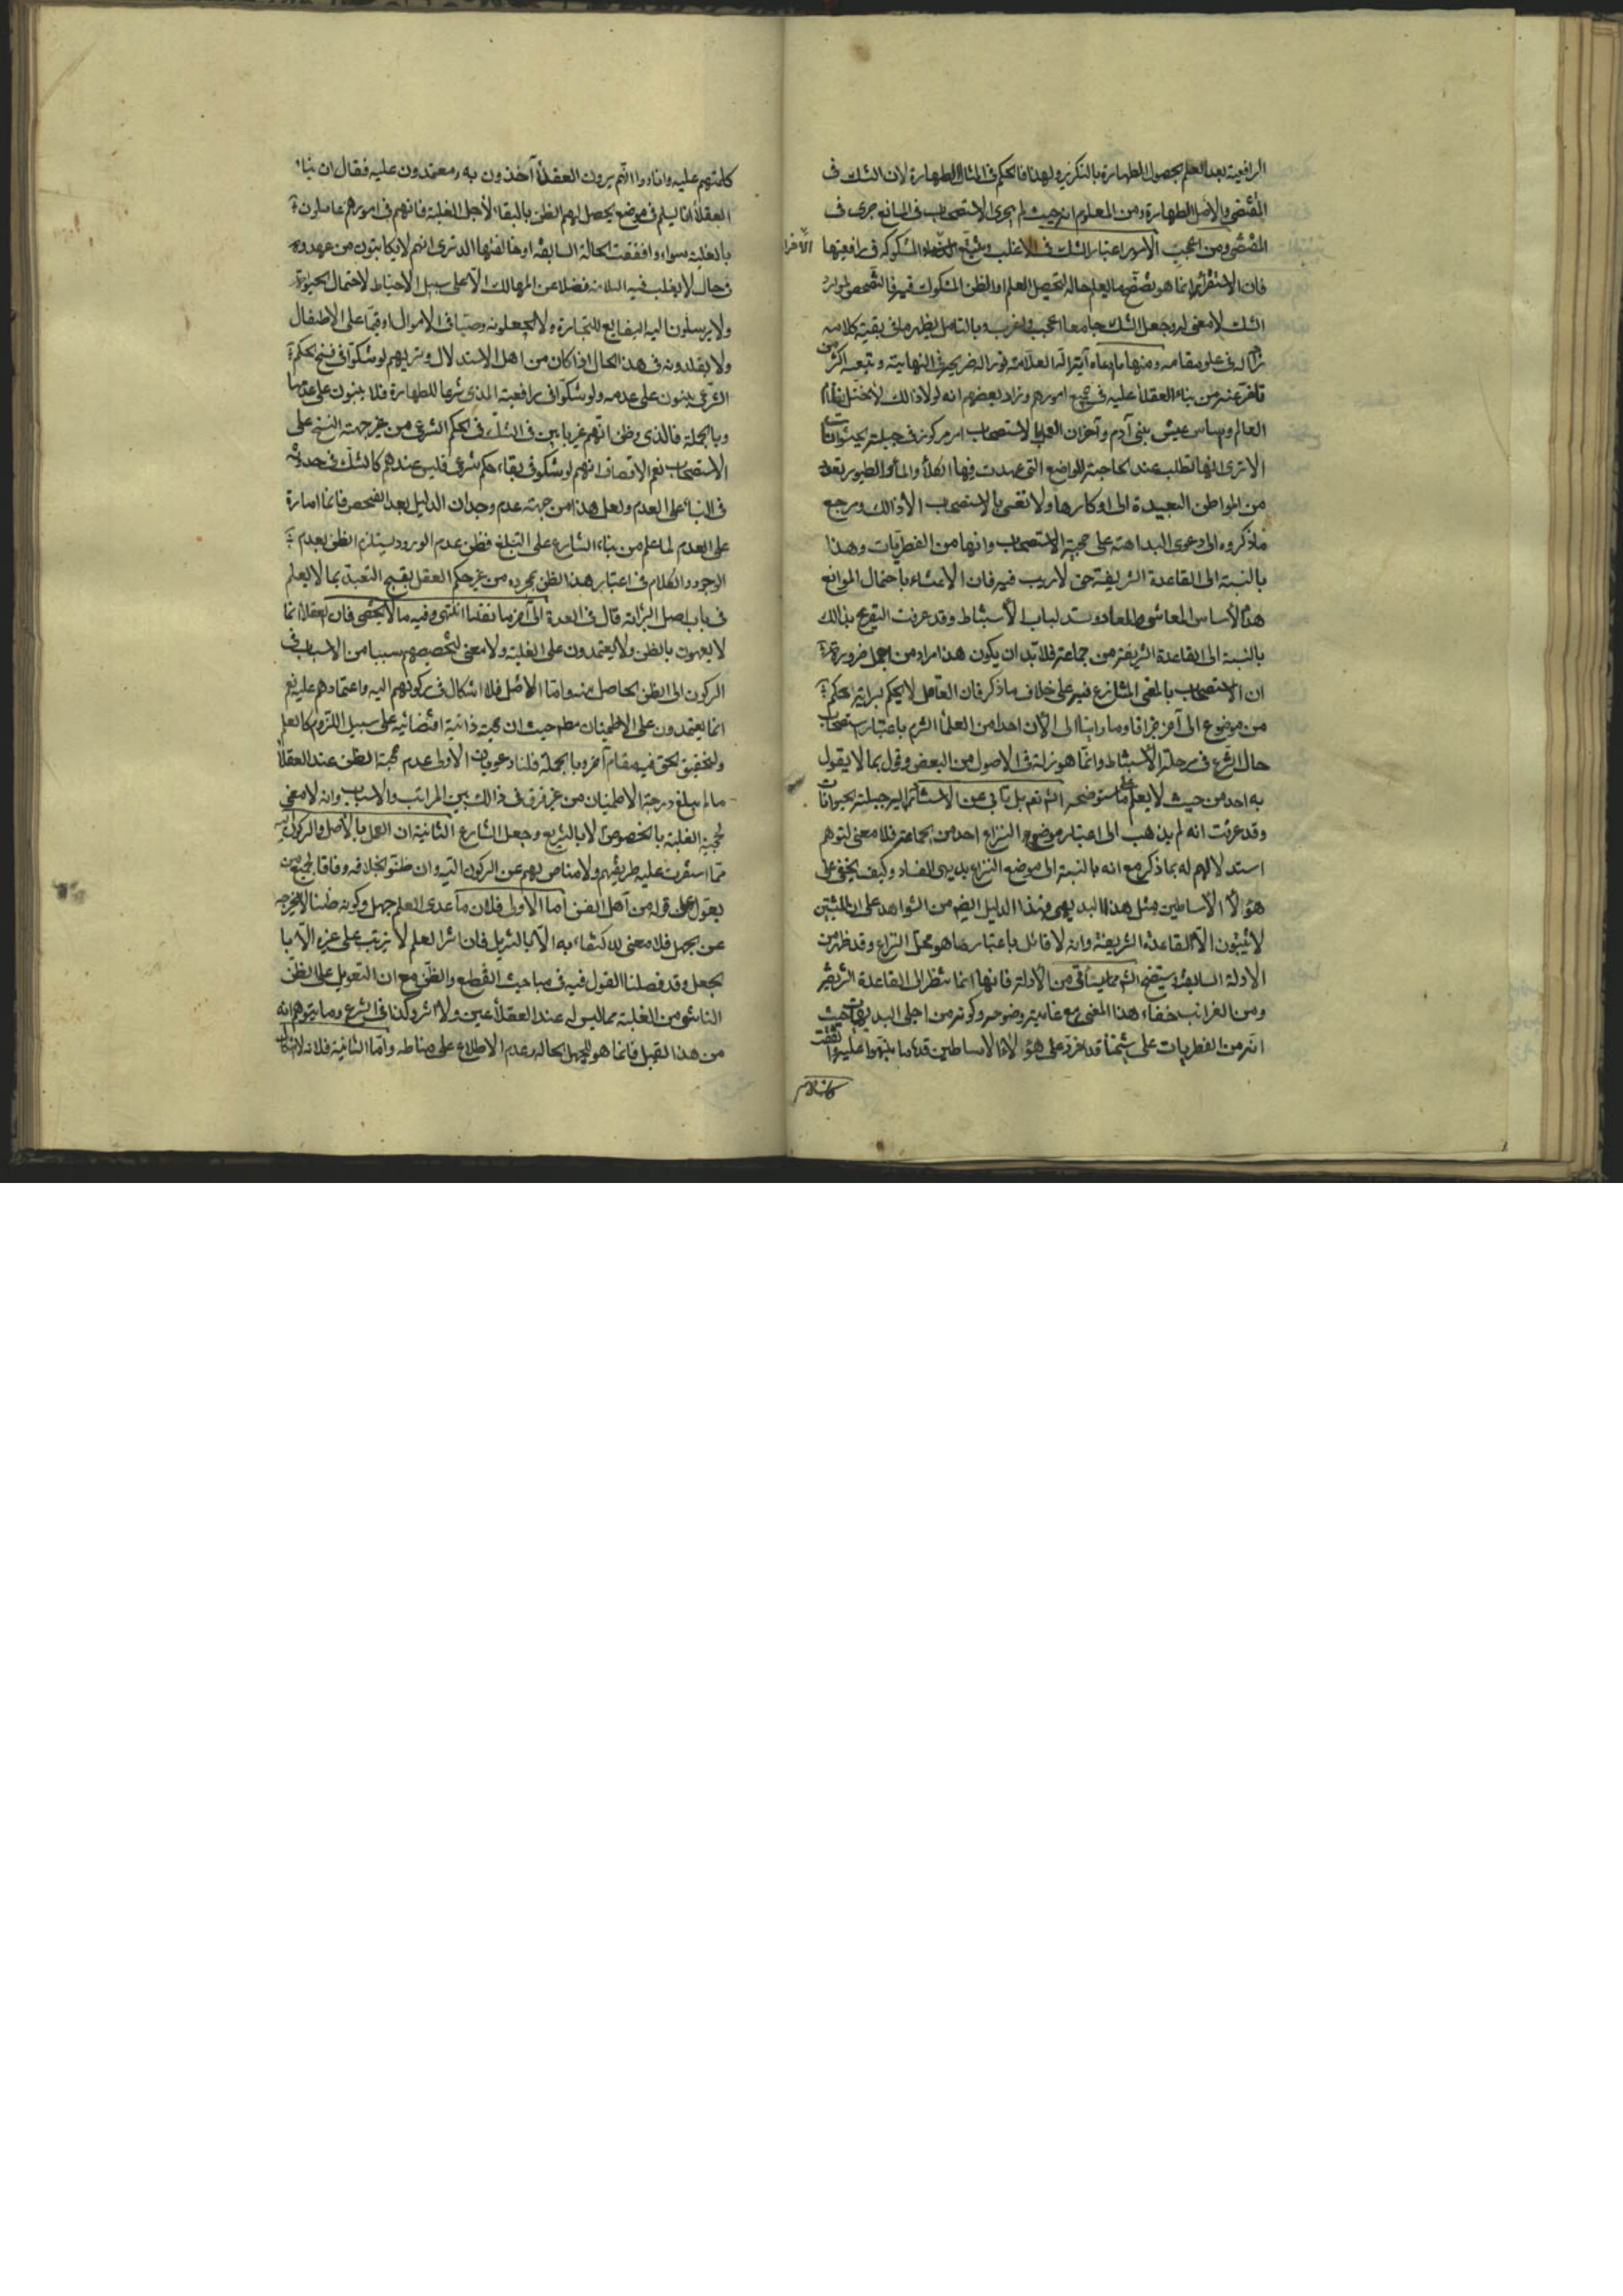 الرافعية بعد العلم بحصول الطهارة بالتكرير ولهذا فالحكم في المثال الطهارة لان الشك في
المقتضى والاصل الطهارة ومن المعلوم انه حيث لم يجرى الاستصحاب في المانع جرى في
المقتضى ومن اعجب الامور اعتبار الشك في الاغلب المشكوكة في رافعيتها
الاخرا
فان الاستقراء انما هو تصفح ما يعلم حاله لتحصيل العلم او الظن المشكوك فيه فالتفحص لموارد
الشك لا معنى له وجعل الشك جامعا اعجب واغرب وبالتامل يظهر ما في بقية كلامه
زاد له في علو مقامه ومنها ما رواه آية الله العلامة نور الله ضريحه في النهاية وتبعه اكثر من
تاخر عنه من بناء العقلاء عليه في جميع امورهم وزاد بعضهم انه لولا ذالك لاختل نظام
العالم واساس عيش بنى آدم وآخر ان العمل بالاستصحاب امر مركوز في جبلة الحيوانات
الا ترى انها تطلب عند الحاجة المواضع التى عهدت فيها الكلاء والماء والطيور تعود
من المواطن البعيدة الى اوكارها ولا نعنى بالاستصحاب الا ذالك ومرجع
ما ذكروه الى دعوى البداهة على حجية الاستصحاب وانها من الفطريات وهذا
بالنسبة الى القاعدة الشريفة حق لا ريب فيه فان الاعتناء باحتمال الموانع
هدم لاساس المعاش والمعاد وسد لباب الاستنباط وقد عرفت التصريح بذالك
بالنسبة الى القاعدة الشريفة من جماعة فلا بد ان يكون هذا مراد من اجمل ضرورة
ان الاستصحاب بالمعنى المتنازع فيه على خلاف ما ذكر فان العاقل لا يحكم بسراية الحكم
من موضوع الى آخر جزافا وما راينا الى الآن احدا من العلماء التزم باعتبار استصحاب
حال الشرع في مرحلة الاستنباط وانما هو زلة في الاصول من البعض وقول بما لا يقول
به احد من حيث لا يعلم على ما ستوضحه انشم نعم بل ياتي عن الاستناد اليه جبلة الحيوانات
وقد عرفت انه لم يذهب الى اعتبار موضوع النزاع احد من الجماعة فلا معنى لتوهم
استدلالهم له بما ذكر مع انه بالنسبة الى موضع النزاع بديهى الفساد وكيف يخفى على
هؤلاء الاساطين مثل هذا البديهى وهذا الدليل ايضم من الشواهد على ان المثبتين
لا يثبتون الا القاعدة الشريفة وانه لا قائل باعتبار ما هو محل النزاع وقد ظهر من
الادلة السابقة ويتضح انشم مما يتاتى من الادلة فانها انما تنظر الى القاعدة الشريفة
ومن الغرائب خفاء هذا المعنى مع غاية وضوحه وكونه من اجلى البديهيات حيث
انه من الفطريات على شيخنا قده فرد على هؤلاء الاساطين قدهم ما نبهوا عليه واتفقت
كلمتهم
كلمتهم عليه وافادوا انهم يرون العقلاء آخذون به ومعتمدون عليه فقال ان بناء
العقلاء انما يسلم في موضع يحصل لهم الظن بالبقاء لأجل الغلبة فانهم في امورهم عاملون
بالغلبة سواء وافقت الحالة السابقة او خالفتها الا ترى انهم لا يكاتبون من عهدوه
في حال لا يغلب فيه السلامة فضلا عن المهالك الا على سبيل الاحتياط لاحتمال الحيوة
ولا يرسلون اليه البضايع للتجارة ولا يجعلونه وصيا في الاموال او قيما على الاطفال
ولا يقلدونه في هذا الحال اذا كان من اهل الاستدلال وتريهم لو شكوا في نسخ الحكم
الشرعى يبنون على عدمه ولو شكوا في رافعية المذى شرعا للطهارة فلا يبنون على عدمها
وبالجملة فالذى وظن انهم غير بانين في الشك في الحكم الشرعى من غير جهة النسخ على
الاستصحاب نعم الانصاف انهم لو شكوا في بقاء حكم شرعى فليس عندهم كالشك في حدوثه
في البناء على العدم ولعل هذا من جهة عدم وجدان الدليل بعد الفحص فانها امارة
على العدم لما علم من بناء الشارع على التبليغ فظن عدم الورود يستلزم الظن بعدم
الوجود والكلام في اعتبار هذا الظن بمجرده من غير حكم العقل بقبح التعبد بما لا يعلم
في باب اصل البرائة قال في العدة الى آخر ما نقلنا انتهى وفيه ما لا يخفى فان العقلاء انما
لا يعبؤن بالظن ولا يعتمدون على الغلبة ولا معنى لتخصيصهم سببا من الاسباب في
الركون الى الظن الحاصل منه واما الاصل فلا اشكال في ركونهم اليه واعتمادهم عليه نعم
انما يعتمدون على الاطمينان مطم حيث ان حجيته ذاتية اقتضائية على سبيل اللزوم كالعلم
ولتحقيق الحق فيه مقام آخر وبالجملة فلنا دعويان الاولى عدم حجية الظن عند العقلاء
ما لم يبلغ درجة الاطمينان من غير فرق في ذالك بين المراتب والاسباب وانه لا معنى
لحجية الغلبة بالخصوص الا بالتشريع وجعل الشارع الثانية ان العمل بالاصل والركون اليه
مما استقرت عليه طريقتهم ولا مناص بهم عن الركون اليه وان ظنوا بخلافه وفاقا لجميع من
يعول على قوله من اهل الفن اما الاولى فلان ما عدى العلم جهل وكونه ظنا لا يخرجه
عن الجهل فلا معنى للاكتفاء به الا بالتنزيل فان اثر العلم لا يترتب على غيره الا با
لجعل وقد فصلنا القول فيه في مباحث القطع والظن مع ان التعويل على الظن
الناشى من الغلبة مما ليس له عند العقلاء عين ولا اثر وكذا في الشرع وما يتوهم انه
من هذا القبيل فانما هو للجهل بحاله وعدم الاطلاع على مناطه واما الثانية فلانه لا اشكال